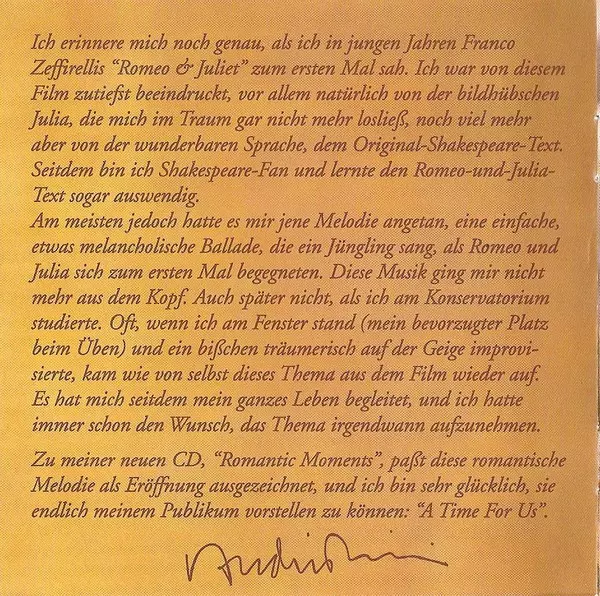 Ich erinnere mich noch genau, als ich in jungen Jahren Franco
Zeffirellis “Romeo & Juliet” zum ersten Mal sah. Ich war von diesem
Film zutiefst beeindruckt, vor allem natürlich von der bildhübschen
Julia, die mich im Traum gar nicht mehr losließ, noch viel mehr
aber von der wunderbaren Sprache, dem Original-Shakespeare-Text.
Seitdem bin ich Shakespeare-Fan und lernte den Romeo-und-Julia-
Text sogar auswendig.
Am meisten jedoch hatte es mir jene Melodie angetan, eine einfache,
etwas melancholische Ballade, die ein Jüngling sang, als Romeo und
Julia sich zum ersten Mal begegneten. Diese Musik ging mir nicht
mehr aus dem Kopf. Auch später nicht, als ich am Konservatorium
studierte. Oft, wenn ich am Fenster stand (mein bevorzugter Platz
beim Üben) und ein bißchen träumerisch auf der Geige improvi-
sierte, kam wie von selbst dieses Thema aus dem Film wieder auf.
Es hat mich seitdem mein ganzes Leben begleitet, und ich hatte
immer schon den Wunsch, das Thema irgendwann aufzunehmen.
Zu meiner neuen CD, “Romantic Moments”, paßt diese romantische
Melodie als Eröffnung ausgezeichnet, und ich bin sehr glücklich, sie
endlich meinem Publikum vorstellen zu können: “A Time For Us”.